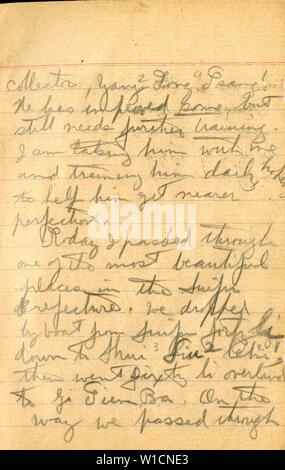 collector, Yang² Fong⁹ Tsang¹.
He has improved some, but
still needs further training.
I am taking him with me
and training him daily, hoping
to help him get nearer
perfection.
Today I passed through
one of the most beautiful
places in the Suifu
prefecture. We dropped
by boat from Suifu
down to Shui³
then went sixty li overland
to Gi Tien Ba. On the
way we passed through
alamy
Image ID: W1CNE3
www.alamy.com